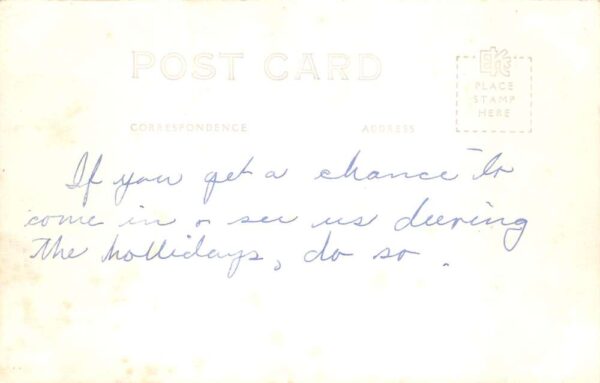 POST CARD
EKC
PLACE
STAMP
HERE
CORRESPONDENCE ADDRESS
If you get a chance to
come in & see us deering
the hollidays, do so.